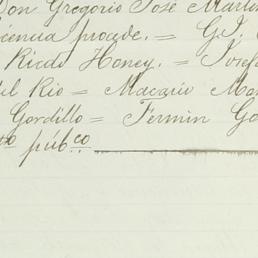 Don Gregorio José Martin
icencia procede. = G. J.
Ricdo Honey. = Josef
del Rio = Macario Mo
Gordillo = Fermin Go
to púbco